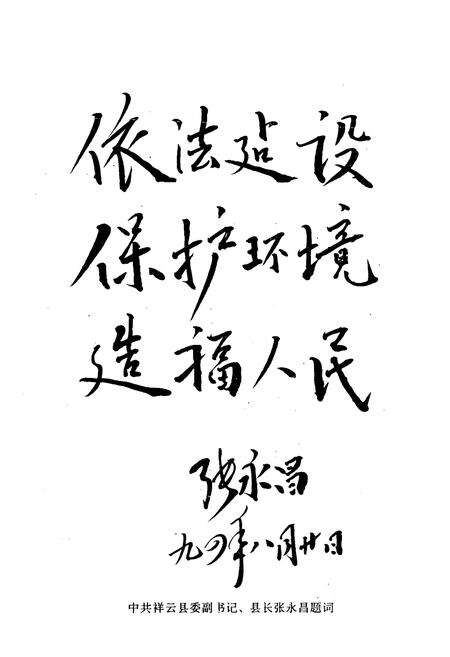 依法建设
保护环境
造福人民
张永昌
九四年八月廿日
中共祥云县委副书记、县长张永昌题词